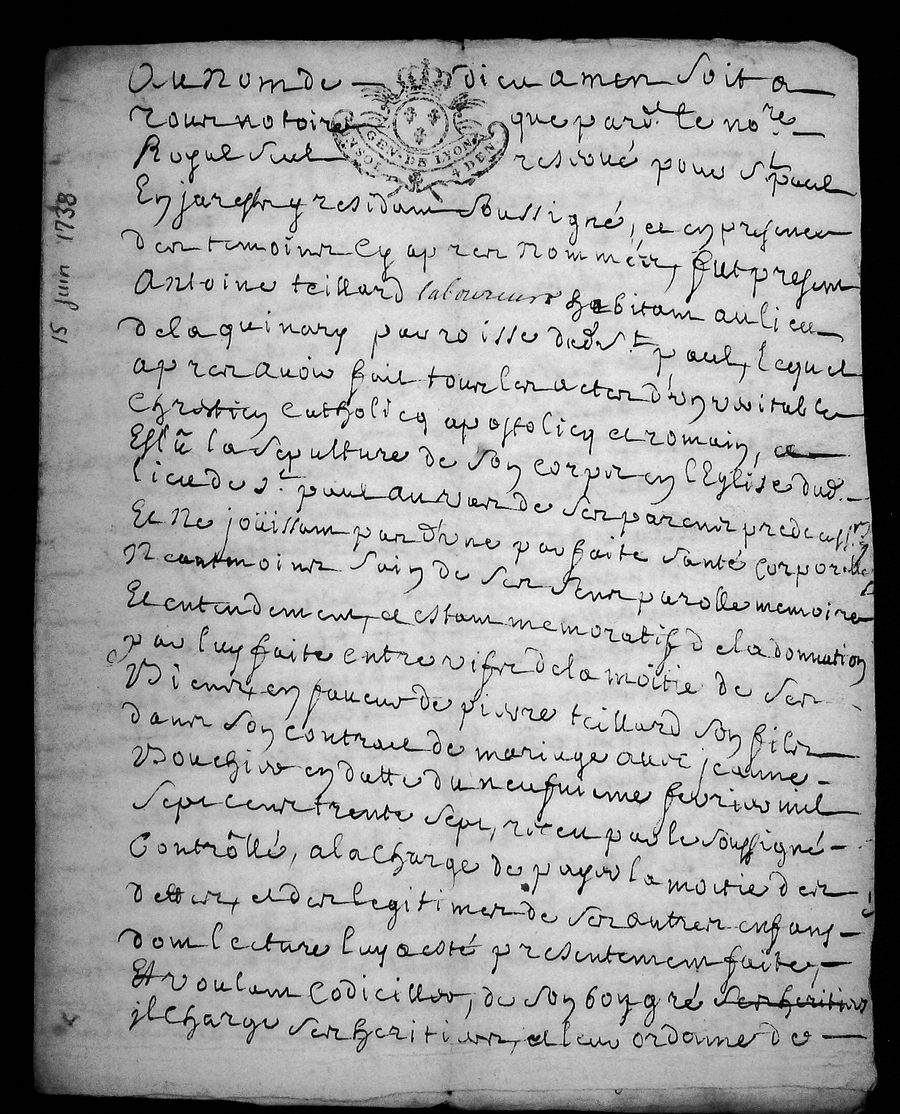 Au Nom de dieu amen soit a
tous notoire que pard.t le no.re
Royal Seul reservé pour S.t paul
En jarest y residant soussigné, et en presence
des temoins Cy apres nommés, fut present
Antoine teillard laboureur habitant au lieu
de la quinary parroisse dud. S.t paul, Lequel
apres avoir fait tous les actes d'un veritable
Chrêtien Catholicq apostolicq et romain, et
Eslû la Sepulture de son corps en l'Eglise dud.
lieu de S.t paul au vas de ses parens predecess.rs
Et Ne joüissant pas d'une parfaite santé corporelle
Neantmoins Sain de ses sens parolle memoire
Et entendement, et estant memoratif de la donnation
par luy faite entre vifs de la moitie de ses
Biens, en faveur de pierre teillard son fils
dans son contract de mariage avec jeanne
Vouchier en datte du neufuieme fevrier mil
sept cens trente sept, receu par le soussigné
Contrôllé, a la charge de payer la moitie des
dettes, et des legitimes de ses autres enfans
dont lecture luy a esté presentement faite,
Et voulant Codiciller, de son bon gré ses heritiers
jl charge ses heritiers, et leur ordonne de
GEN. DE LYON
4 DEN
15 Juin 1738